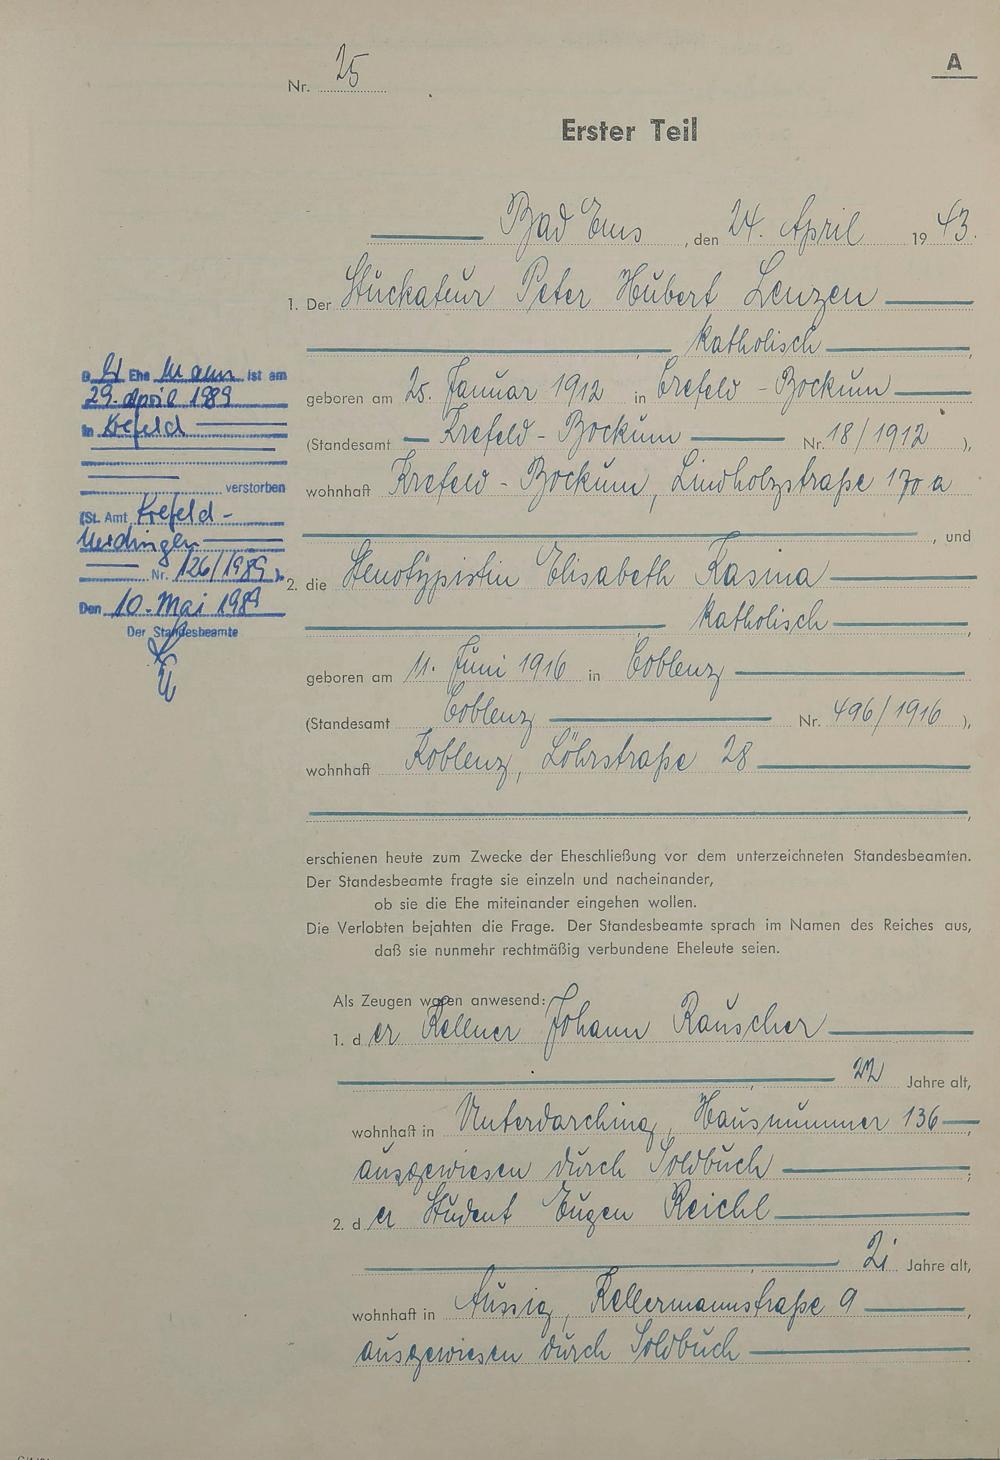 A
Nr. 25
Erster Teil
Bad Ems, den 24. April 1943.
1. Der Stuckateur Peter Hubert Lenzen
katholisch,
geboren am 25. Januar 1912 in Crefeld - Bockum
(Standesamt Krefeld - Bockum Nr. 18/1912),
wohnhaft Krefeld - Bockum, Lindholzstraße 170 a
, und
2. die Stenotypistin Elisabeth Kasina
katholisch,
geboren am 11. Juni 1916 in Coblenz
(Standesamt Coblenz Nr. 496/1916),
wohnhaft Koblenz, Löhrstraße 28
,
erschienen heute zum Zwecke der Eheschließung vor dem unterzeichneten Standesbeamten.
Der Standesbeamte fragte sie einzeln und nacheinander,
ob sie die Ehe miteinander eingehen wollen.
Die Verlobten bejahten die Frage. Der Standesbeamte sprach im Namen des Reiches aus,
daß sie nunmehr rechtmäßig verbundene Eheleute seien.
Als Zeugen waren anwesend:
1. der Kellner Johann Rauscher
, 22 Jahre alt,
wohnhaft in Unterdarching, Hausnummer 136,
ausgewiesen durch Soldbuch;
2. der Student Eugen Reichl
, 21 Jahre alt,
wohnhaft in Aussig, Kellermannstraße 9,
ausgewiesen durch Soldbuch
Der Ehemann ist am
29. April 1989
in Krefeld
verstorben
(St. Amt Krefeld -
Uerdingen
Nr. 126/1989).
Den 10. Mai 1989
Der Standesbeamte